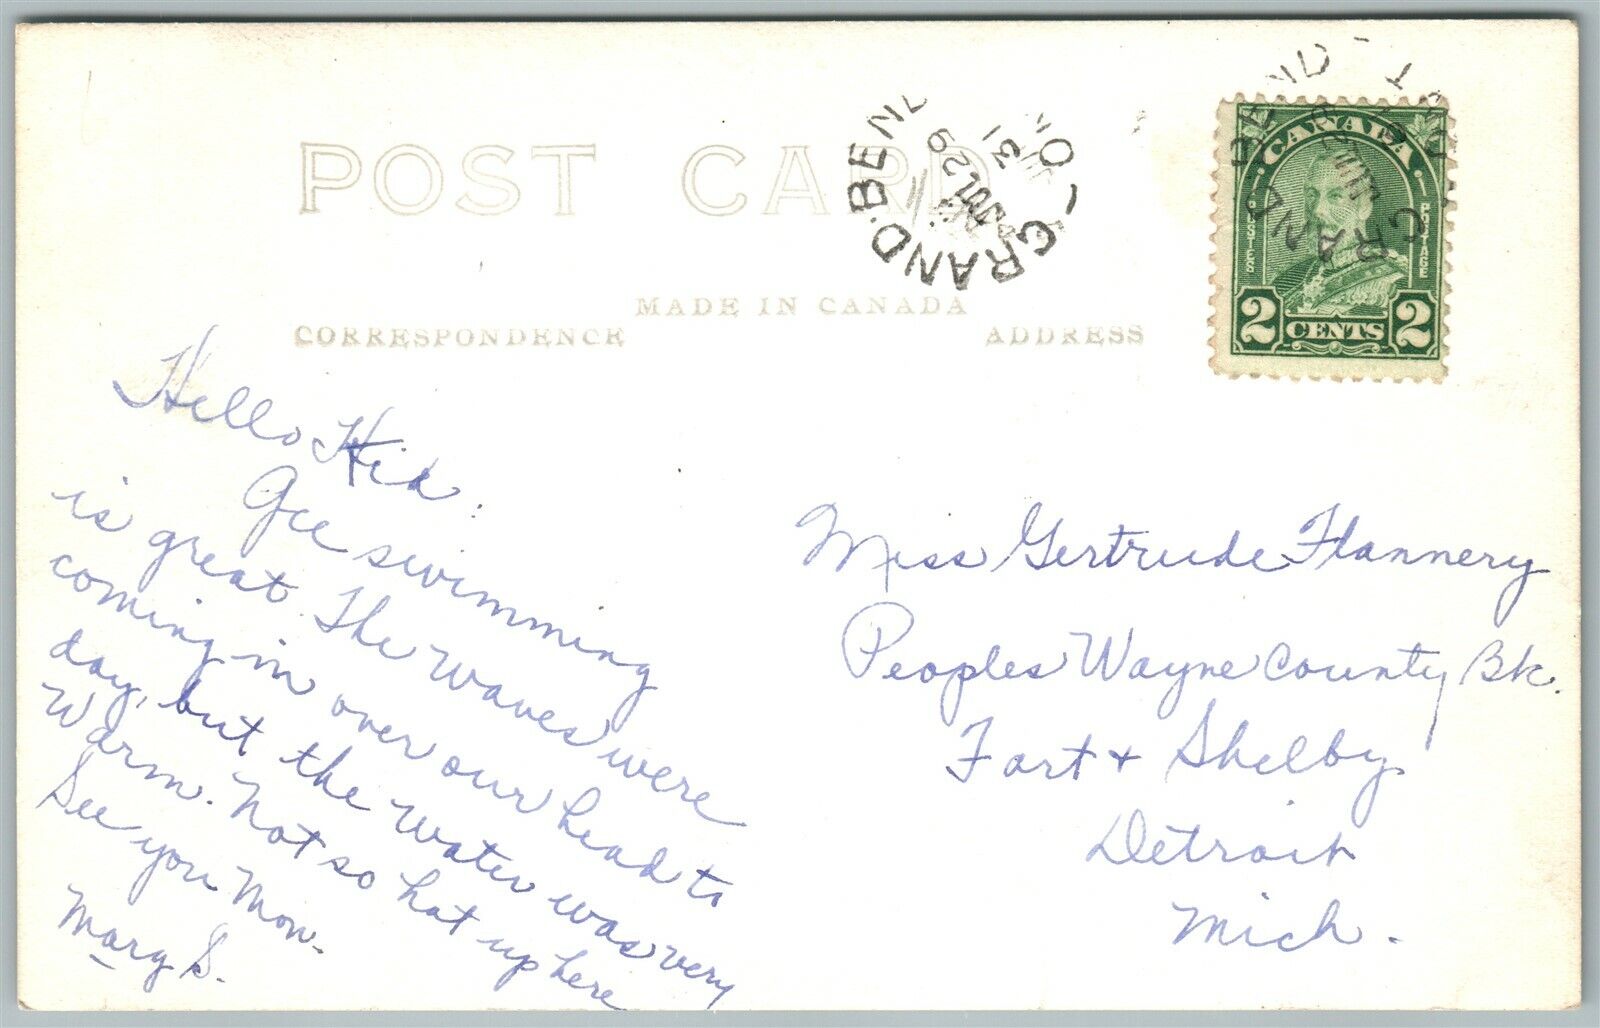 POST CARD
MADE IN CANADA
CORRESPONDENCE
ADDRESS
GRAND BEND
ONT
JUL 29
31
GRAND BEND
ONT
CANADA
POSTES
POSTAGE
2 CENTS 2
Hello Kid:
Gee swimming
is great. The waves were
coming in over our head to
day, but the water was very
warm. Not so hot up here
See you Mon.
Mary S.
Miss Gertrude Flannery
Peoples Wayne County Bk.
Fort + Shelby
Detroit
Mich.